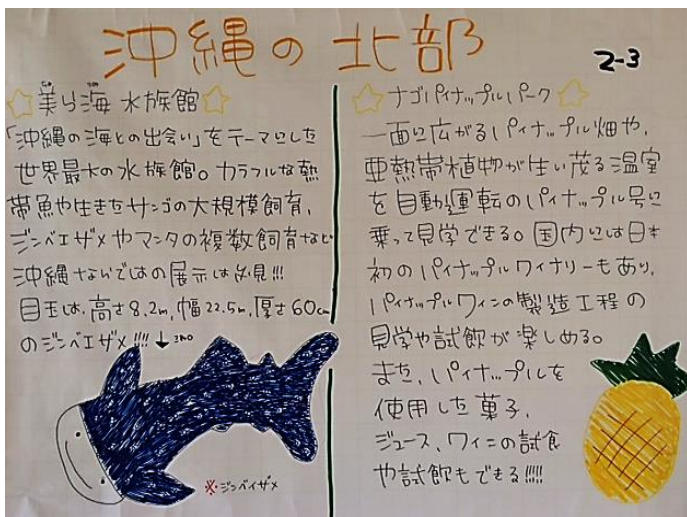 沖縄の北部
2-3
美ら海水族館
「沖縄の海との出会い」をテーマにした
世界最大の水族館。カラフルな熱
帯魚や生きたサンゴの大規模飼育、
ジンベエザメやマンタの複数飼育など
沖縄ならではの展示は必見!!!
目玉は、高さ8.2m,幅22.5m,厚さ60cm
のジンベエザメ!!!! ↓
※ジンベイザメ
ナゴパイナップルパーク
一面に広がるパイナップル畑や、
亜熱帯植物が生い茂る温室
を自動運転のパイナップル号に
乗って見学できる。国内には日本
初のパイナップルワイナリーもあり、
パイナップルワインの製造工程の
見学や試飲が楽しめる。
また、パイナップルを
使用した菓子、
ジュース、ワインの試食
や試飲もできる!!!!!